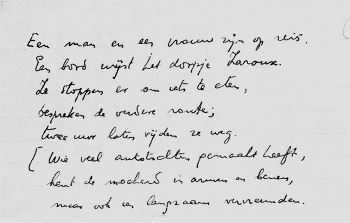 Een man en een vrouw zijn op reis.
Een bord wijst het dorpje Laroux.
Ze stoppen er om iets te eten,
bespreken de verdere route;
twee uur later rijden ze weg.
[ Wie veel autotochten gemaakt heeft,
kent de moeheid in armen en benen,
maar ook een langzaam vervreemden.